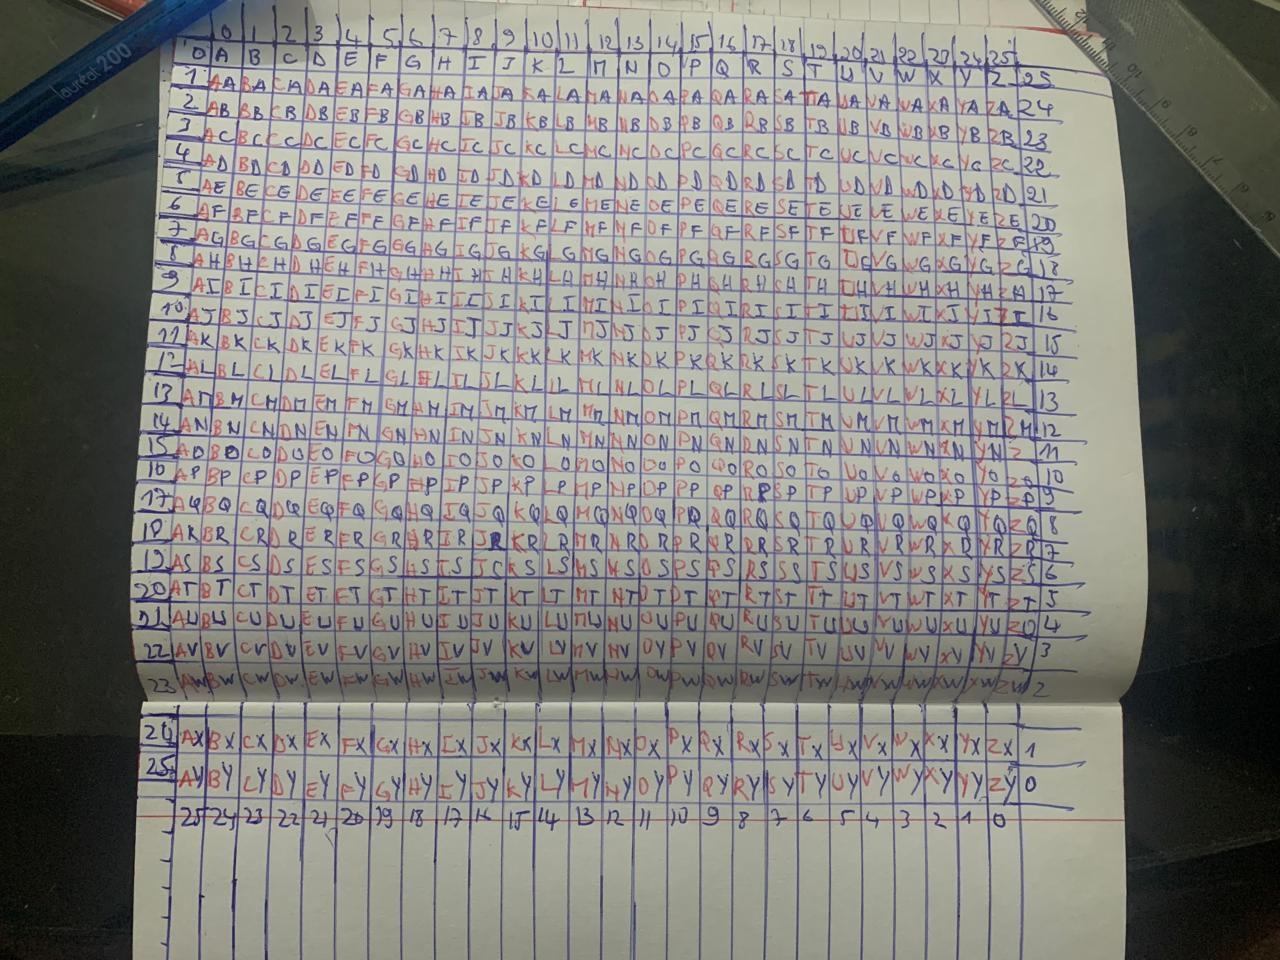 lauréat 200
0 1 2 3 4 5 6 7 8 9 10 11 12 13 14 15 16 17 18 19 20 21 22 23 24 25
0 A B C D E F G H I J K L M N O P Q R S T U V W X Y Z 25
1 AA BA CA DA EA FA GA HA IA JA KA LA MA NA OA PA QA RA SA TA UA VA WA XA YA ZA 24
2 AB BB CB DB EB FB GB HB IB JB KB LB MB NB OB PB QB RB SB TB UB VB WB XB YB ZB 23
3 AC BC CC DC EC FC GC HC IC JC KC LC MC NC OC PC QC RC SC TC UC VC WC XC YC ZC 22
4 AD BD CD DD ED FD GD HD ID JD KD LD MD ND OD PD QD RD SD TD UD VD WD XD YD ZD 21
5 AE BE CE DE EE FE GE HE IE JE KE LE ME NE OE PE QE RE SE TE UE VE WE XE YE ZE 20
6 AF BF CF DF EF FF GF HF IF JF KF LF MF NF OF PF QF RF SF TF UF VF WF XF YF ZF 19
7 AG BG CG DG EG FG GG HG IG JG KG LG MG NG OG PG QG RG SG TG UG VG WG XG YG ZG 18
8 AH BH CH DH EH FH GH HH IH JH KH LH MH NH OH PH QH RH SH TH UH VH WH XH YH ZH 17
9 AI BI CI DI EI FI GI HI II JI KI LI MI NI OI PI QI RI SI TI UI VI WI XI YI ZI 16
10 AJ BJ CJ DJ EJ FJ GJ HJ IJ JJ KJ LJ MJ NJ OJ PJ QJ RJ SJ TJ UJ VJ WJ XJ YJ ZJ 15
11 AK BK CK DK EK FK GK HK IK JK KK LK MK NK OK PK QK RK SK TK UK VK WK XK YK ZK 14
12 AL BL CL DL EL FL GL HL IL JL KL LL ML NL OL PL QL RL SL TL UL VL WL XL YL ZL 13
13 AM BM CM DM EM FM GM HM IM JM KM LM MM NM OM PM QM RM SM TM UM VM WM XM YM ZM 12
14 AN BN CN DN EN FN GN HN IN JN KN LN MN NN ON PN QN DN SN TN UN VN WN XN YN Z 11
15 AO BO CO DO EO FO GO HO IO JO KO LO MO NO OO PO QO RO SO TO UO VO WO XO YO 10
16 AP BP CP DP EP FP GP HP IP JP KP LP MP NP OP PP QP RP SP TP UP VP WP XP YP ZP 9
17 AQ BQ CQ DQ EQ FQ GQ HQ IQ JQ KQ LQ MQ NQ OQ PQ QQ RQ SQ TQ UQ VQ WQ XQ YQ ZQ 8
18 AR BR CR DR ER FR GR HR IR JR KR LR MR NR OR PR QR RR SR TR UR VR WR XR YR ZR 7
19 AS BS CS DS ES FS GS HS IS JS KS LS MS NS OS PS QS RS SS TS US VS WS XS YS ZS 6
20 AT BT CT DT ET FT GT HT IT JT KT LT MT NT OT DT QT RT ST TT UT VT WT XT YT ZT 5
21 AU BU CU DU EU FU GU HU IU JU KU LU MU NU OU PU QU RU SU TU UU VU WU XU YU ZU 4
22 AV BV CV DV EV FV GV HV IV JV KV LV MV NV OV PV QV RV SV TV UV VV WV XV YV ZV 3
23 AW BW CW DW EW FW GW HW IW JW KW LW MW NW OW PW QW RW SW TW UW VW WW XW YW ZW 2
24 AX BX CX DX EX FX GX HX IX JX KX LX MX NX OX PX QX RX SX TX UX VX WX XX YX ZX 1
25 AY BY CY DY EY FY GY HY IY JY KY LY MY NY OY PY QY RY SY TY UY VY WY XY YY ZY 0
25 24 23 22 21 20 19 18 17 16 15 14 13 12 11 10 9 8 7 6 5 4 3 2 1 0